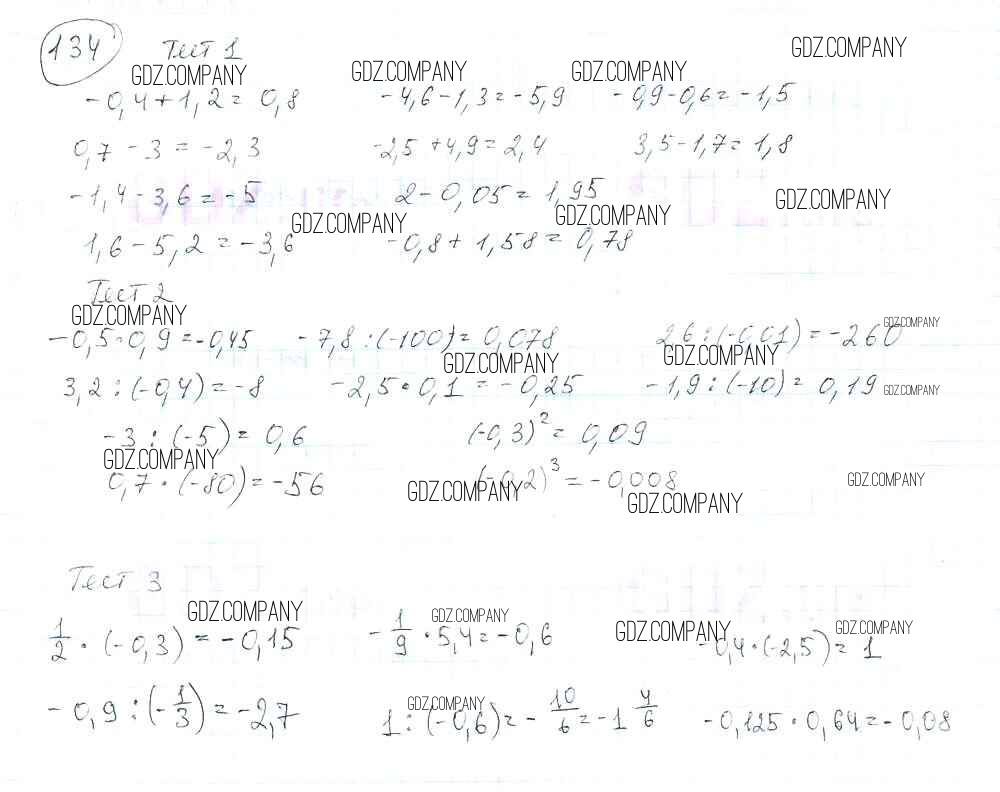 134 Тест 1
GDZ.COMPANY GDZ.COMPANY GDZ.COMPANY GDZ.COMPANY
-0,4+1,2=0,8 -4,6-1,3=-5,9 -0,9-0,6=-1,5
0,7-3=-2,3 -2,5+4,9=2,4 3,5-1,7=1,8
-1,4-3,6=-5 2-0,05=1,95 GDZ.COMPANY
GDZ.COMPANY GDZ.COMPANY
1,6-5,2=-3,6 -0,8+1,58=0,78
Тест 2
GDZ.COMPANY GDZ.COMPANY
-0,5·0,9=-0,45 -7,8:(-100)=0,078 26:(-0,01)=-260
GDZ.COMPANY GDZ.COMPANY
3,2:(-0,4)=-8 -2,5·0,1=-0,25 -1,9:(-10)=0,19 GDZ.COMPANY
-3:(-5)=0,6 (-0,3)²=0,09
GDZ.COMPANY
0,7·(-80)=-56 (-0,2)³=-0,008 GDZ.COMPANY
GDZ.COMPANY GDZ.COMPANY
Тест 3
GDZ.COMPANY GDZ.COMPANY GDZ.COMPANY GDZ.COMPANY
1/2·(-0,3)=-0,15 -1/9·5,4=-0,6 -0,4·(-2,5)=1
GDZ.COMPANY
-0,9:(-1/3)=-2,7 1:(-0,6)=-10/6=-1 4/6 -0,125·0,64=-0,08